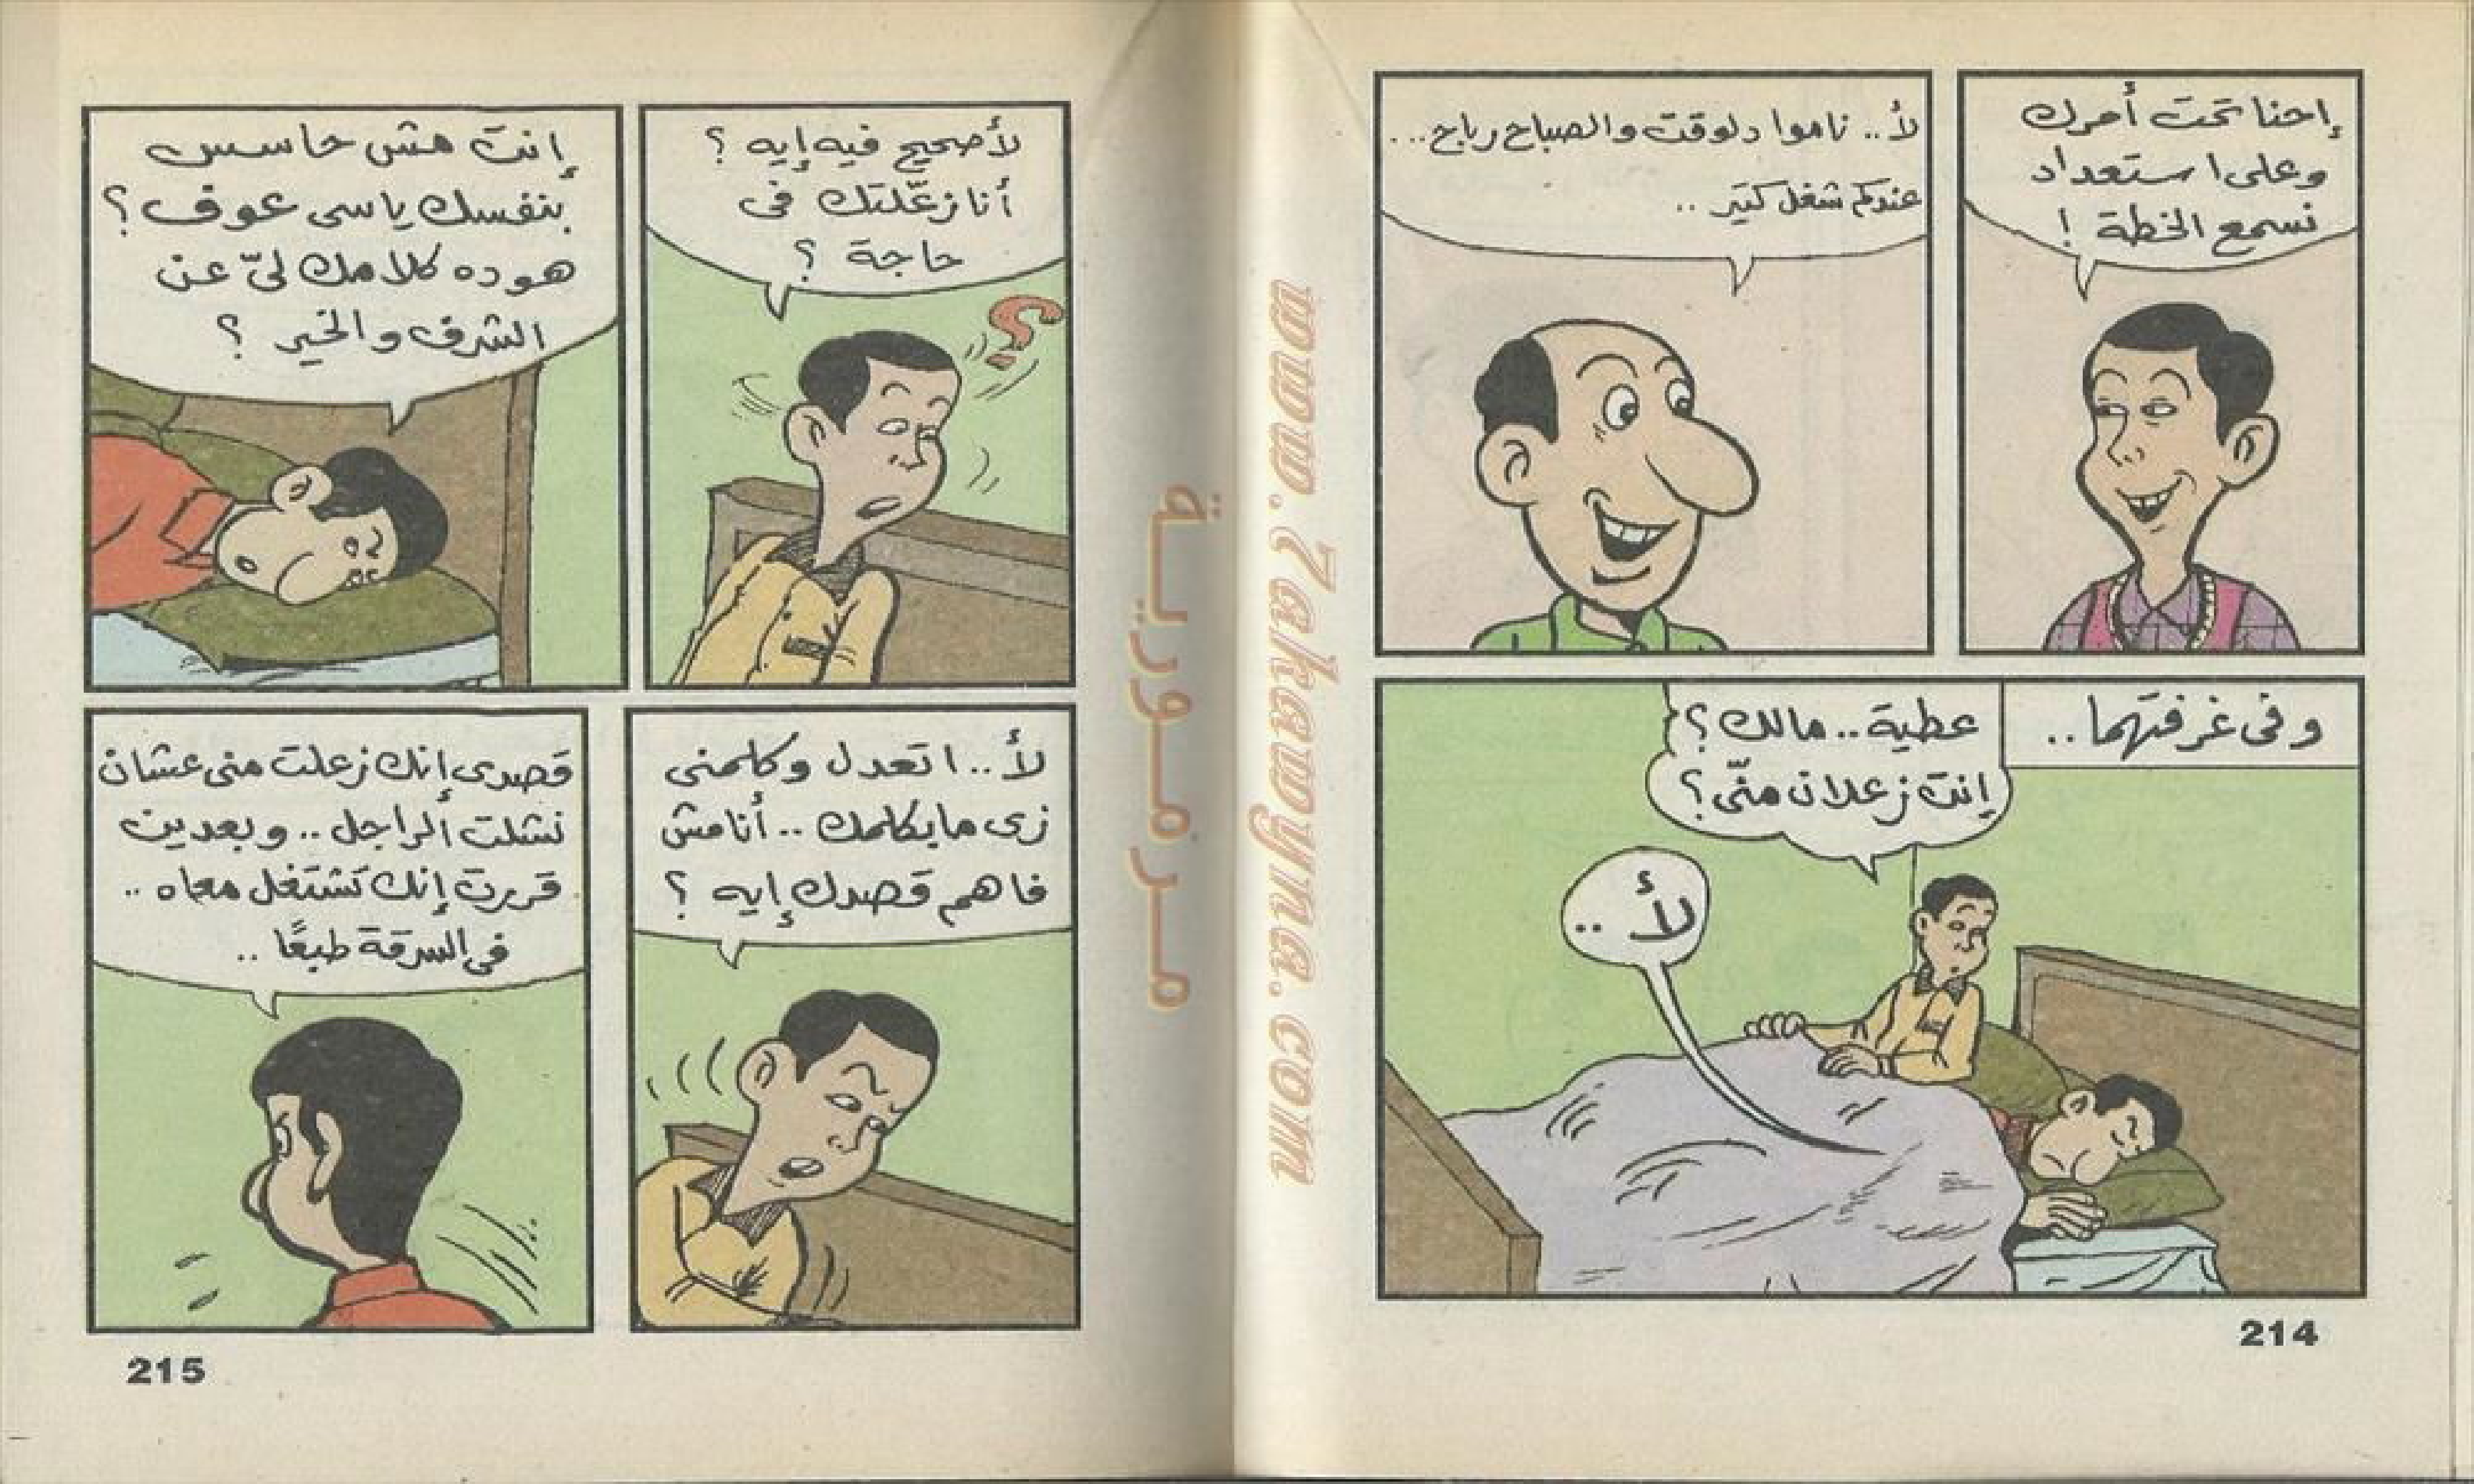 إحنا تحت أمرك
وعلى استعداد
نسمع الخطة !
لأ.. ناموا دلوقت والصباح رباح...
عندكم شغل كتير ..
وفى غرفتهما..
عطية.. مالك؟
إنت زعلان منّى؟
لأ ..
214
لأ صحيح فيه إيه ؟
أنا زعّلتك فى
حاجة ؟
إنت مش حاسس
بنفسك ياسى عوف؟
هوده كلامك لىّ عن
الشرف والخير ؟
لأ.. اتعدل وكلمنى
زى مايكلمك .. أنا مش
فاهم قصدك إيه ؟
قصدى إنك زعلت منى عشان
نشلت الراجل .. وبعدين
قررت إنك تشتغل معاه ..
فى السرقة طبعًا ..
215
مرمورية
www.7akawyna.com